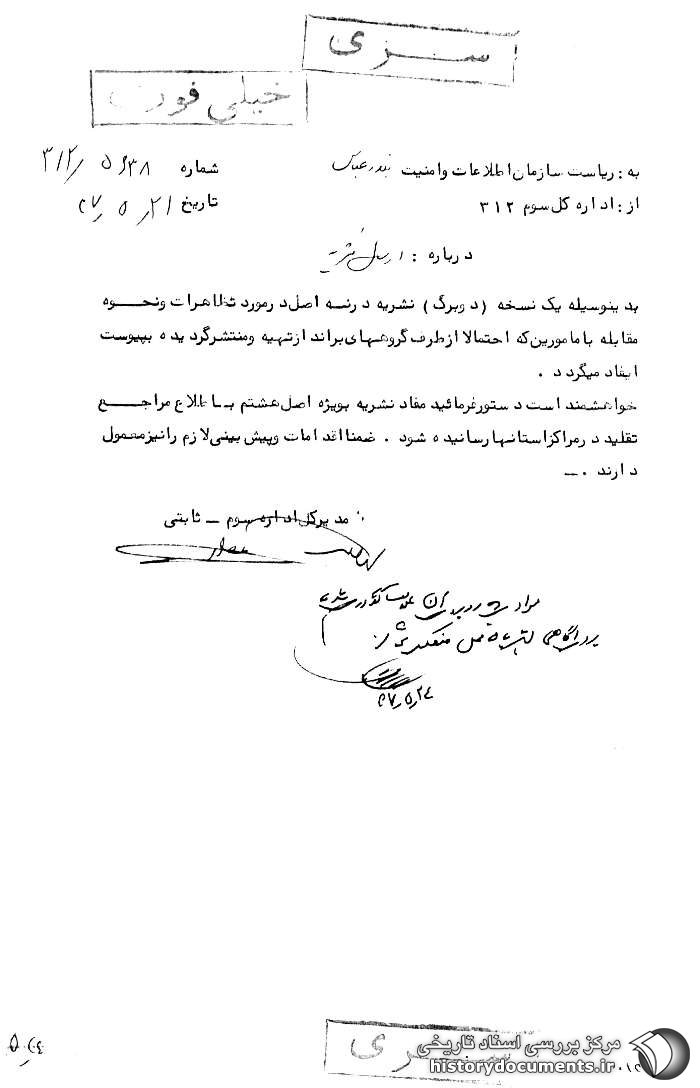 سری
خیلی فوری
به: ریاست سازمان اطلاعات وامنیت بندرعباس
شماره ۳۱۲/۵۶۳۸
از: اداره کل سوم ۳۱۲
تاریخ ۲۱/۵/۳۷
درباره : ارسال نشریه
بدینوسیله یک نسخه (دوبرگ) نشریه درنه اصل درمورد تظاهرات ونحوه
مقابله بامامورین که احتمالا ازطرف گروههای برانداز تهیه ومنتشرگردیده بپیوست
ایفاد میگردد .
خواهشمند است دستورفرمائید مفاد نشریه بویژه اصل هشتم باطلاع مراجع
تقلید درمراکزاستانها رسانیده شود . ضمنا اقدامات وپیش بینی لازم رانیزمعمول
دارند .ــ
مدیرکل اداره سوم ــ ثابتی
۲۴/۵/۳۷
مرکز بررسی اسناد تاریخی
historydocuments.ir
سری